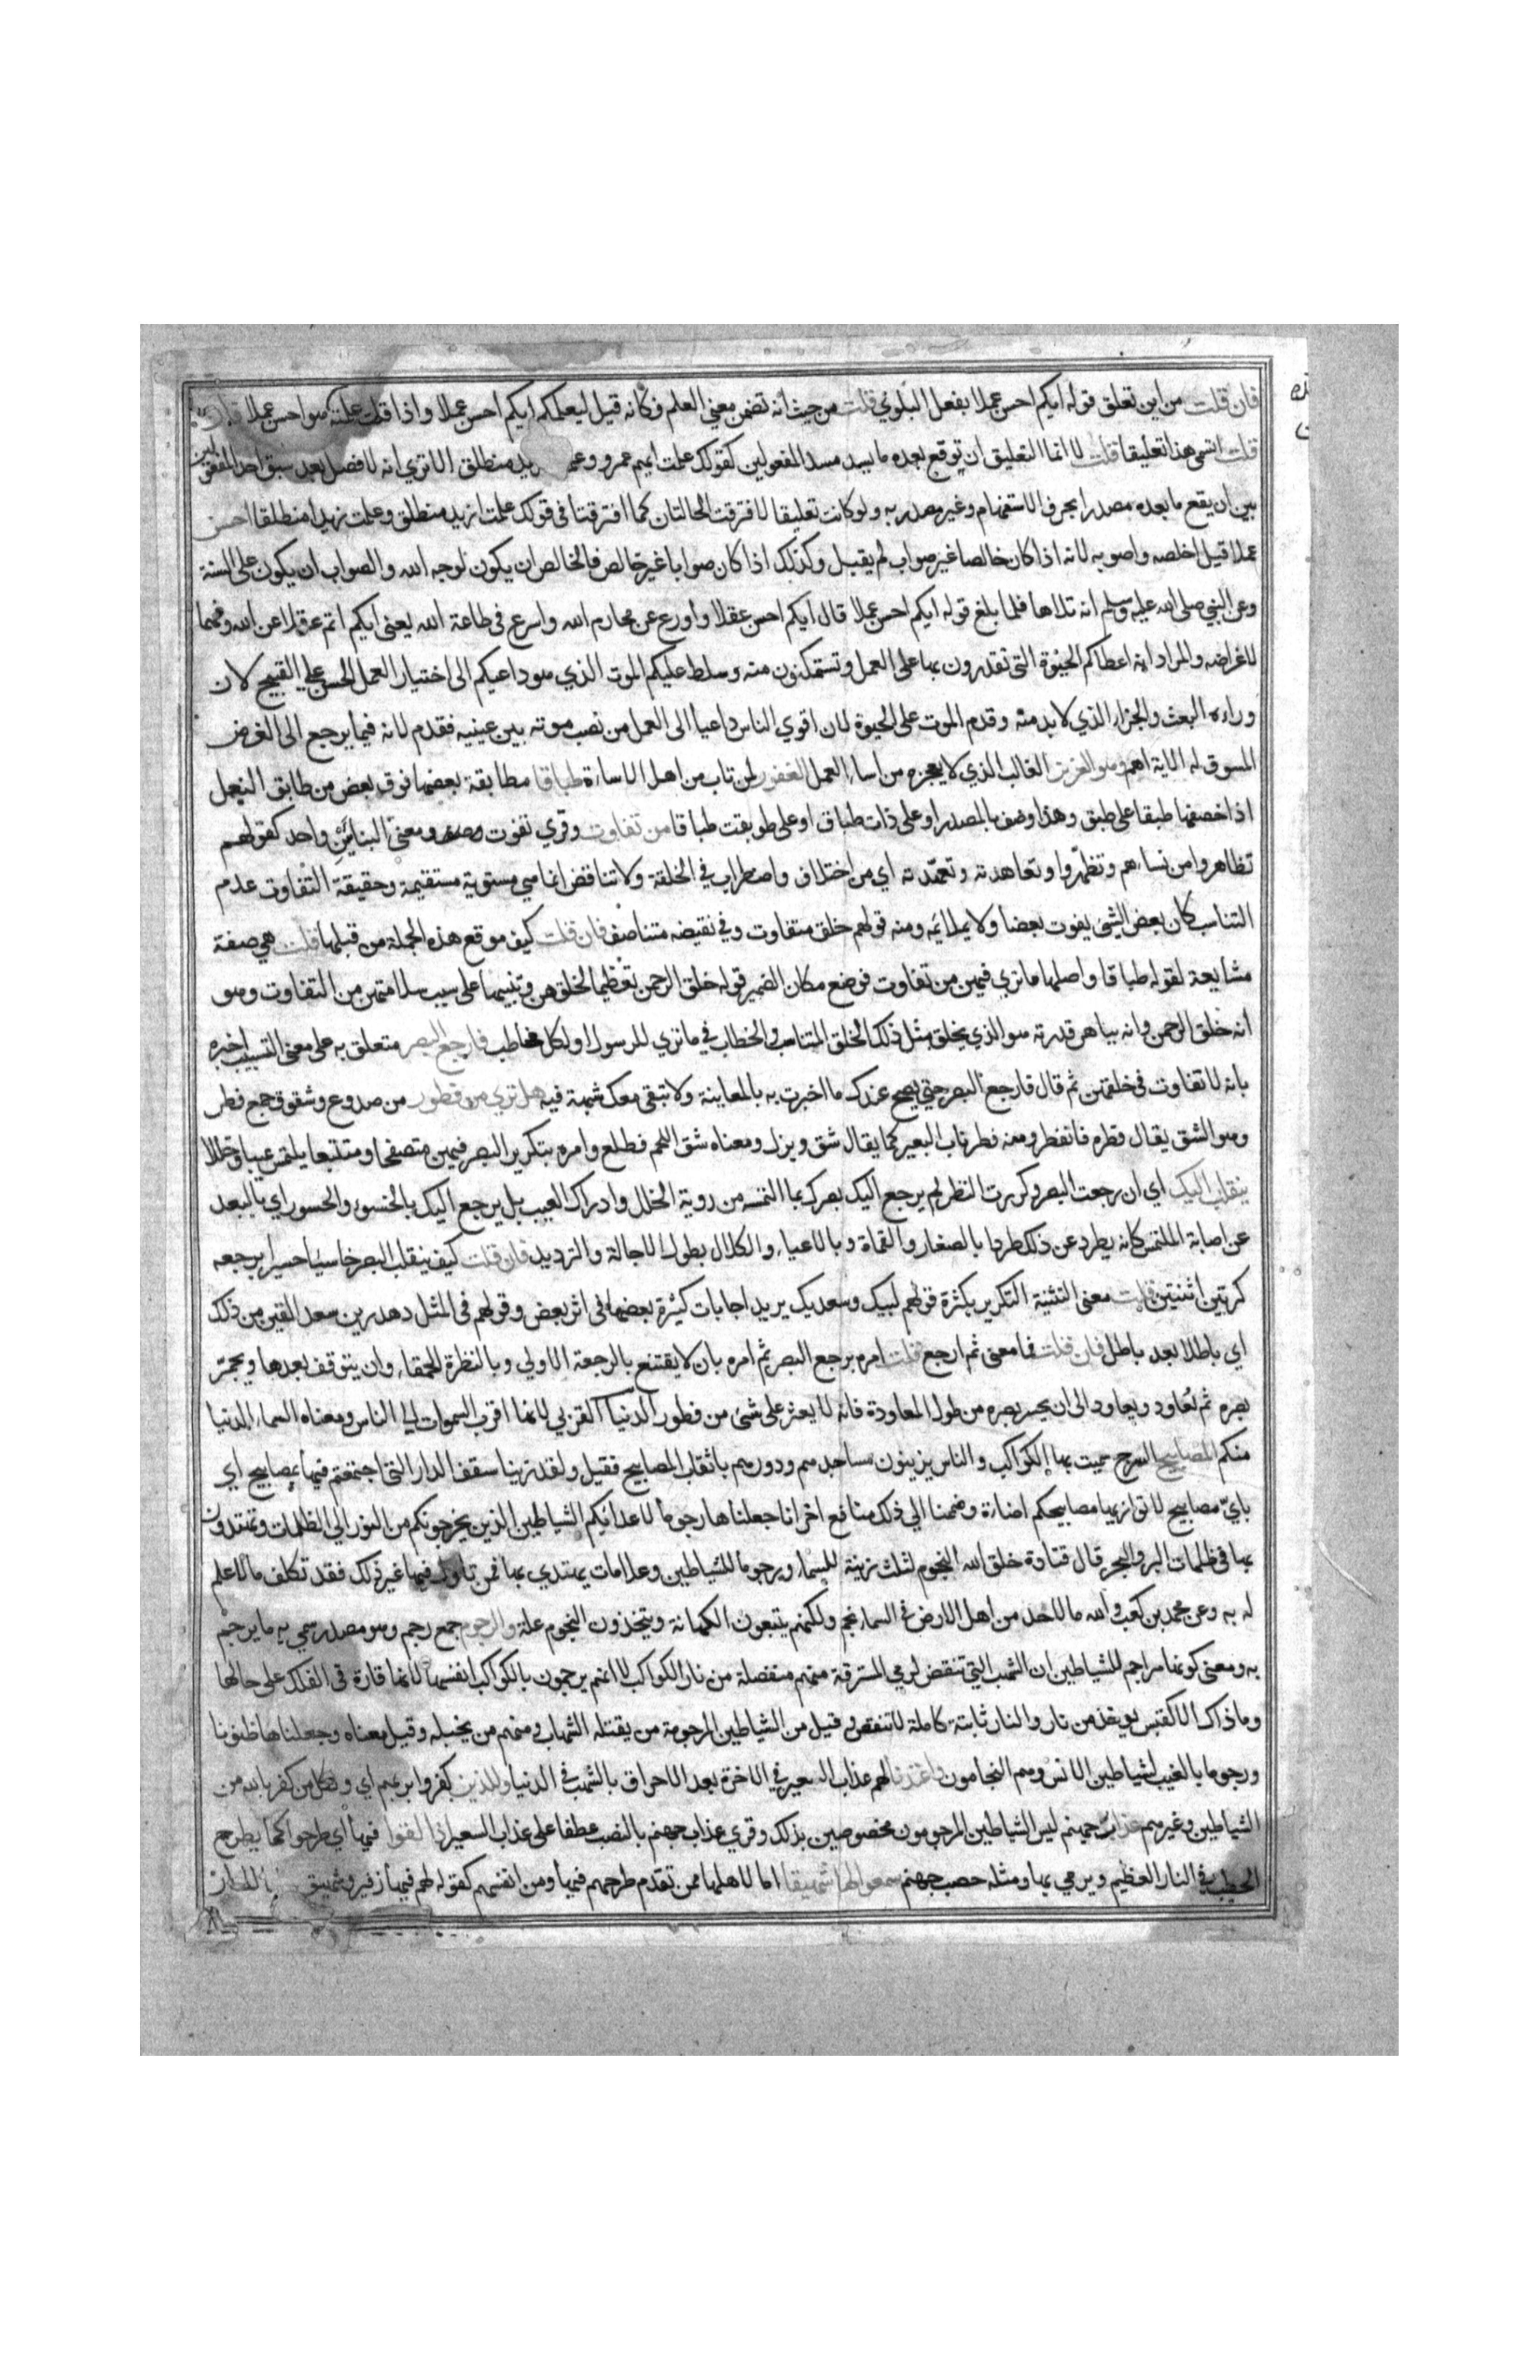 فان قلت من اين تعلق قوله ايكم احسن عملا بفعل البلوي قلت من حيث أنه تضمن معنى العلم فكأنه قيل ليعلمكم ايكم احسن عملا واذا قلت علمته هو احسن عملا
قلت اتسمي هذا تعليقا قلت لا انما التعليق ان توقع بعده ما يسد مسد المفعولين كقولك علمت ايهم عمرو منطلق الا تري انه لا فصل بعد سبق احد المفعولين
بين ان يقع ما بعده مصدرا بحرف الاستفهام وغير مصدر به ولو كانت تعليقا لافترقت الحالتان كما افترقتا في قولك علمت ازيد منطلق وعلمت زيدا منطلقا احسن
عملا قيل اخلصه واصوبه لانه اذا كان خالصا غير صواب لم يقبل وكذلك اذا كان صوابا غير خالص فالخالص ان يكون لوجه الله والصواب ان يكون على السنة
وعن النبي صلى الله عليه وسلم انه تلاها فلما بلغ قوله ايكم احسن عملا قال ايكم احسن عقلا واورع عن محارم الله واسرع في طاعة الله يعني ايكم اتم عقلا عن الله وفهما
لاغراضه والمراد انه اعطاكم الحيوة التي تقدرون بها على العمل وتستمكنون منه وسلط عليكم الموت الذي هو داعيكم الى اختيار العمل الحسن على القبيح لان
وراءه البعث والجزاء الذي لا بد منه وقدم الموت على الحيوة لان اقوي الناس داعيا الى العمل من نصب موته بين عينيه فقدم لانه فيما يرجع الى الغرض
المسوق له الاية اهم وهو العزيز الغالب الذي لا يعجزه من اساء العمل الغفور لمن تاب من اهل الاساءة طباقا مطابقة بعضها فوق بعض من طابق النعل
اذا خصفها طبقا على طبق وهذا وصف بالمصدر او على ذات طباق او على طوبقت طباقا من تفاوت وقري تفوت ومعنى البنائين واحد كقولهم
تظاهروا من نسائهم وتظهروا وتعاهدته وتعهدته اي من اختلاف واضطراب في الخلقة ولا تناقض انما هي مستوية مستقيمة وحقيقة التفاوت عدم
التناسب كان بعض الشئ يفوت بعضا ولا يلائمه ومنه قولهم خلق متفاوت وفي نقيضه متناصف فان قلت كيف موقع هذه الجملة من قبلها قلت هي صفة
مشايعة لقوله طباقا واصلها ما تري فيهن من تفاوت فوضع مكان الضمير قوله خلق الرحمن تعظيما لخلقهن وتنبيها على سبب سلامتهن من التفاوت وهو
انه خلق الرحمن وانه بباهر قدرته هو الذي يخلق مثل ذلك الخلق المتناسب والخطاب في ما تري للرسول او لكل مخاطب فارجع البصر متعلق به على معنى التسبيب اخبره
بانه لا تفاوت في خلقهن ثم قال فارجع البصر حتي يصح عندك ما اخبرت به بالمعاينة ولا تبقى معك شبهة فيه هل تري من فطور من صدوع وشقوق جمع فطر
وهو الشق يقال فطره فانفطر ومنه فطر ناب البعير كما يقال شق وبزل ومعناه شق اللحم فطلع وامره بتكرير البصر فيهن متصفحا ومتتبعا يلتمس عيبا وخللا
ينقلب اليك اي ان رجعت البصر وكررت النظر لم يرجع اليك بصرك بما التمسته من روية الخلل وادراك العيب بل يرجع اليك بالخسوء والحسور اي بالبعد
عن اصابة الملتمس كانه يطرد عن ذلك طردا بالصغار والقماة وبالاعياء والكلال بطول الاجالة والترديد فان قلت كيف ينقلب البصر خاسئا حسيرا برجعه
كرتين اثنتين قلت معنى التثنية التكرير بكثرة قولهم لبيك وسعديك يريد اجابات كثيرة بعضها في اثر بعض وقولهم في المثل دهدرين سعد القين من ذلك
اي باطلا بعد باطل فان قلت فما معنى ثم ارجع قلت امره برجع البصر ثم امره بان لا يقتنع بالرجعة الاولي وبالنظرة الحمقاء وان يتوقف بعدها ويجم
بصره ثم يعاود ويعاود الى ان يحسر بصره من طول المعاودة فانه لا يعثر على شئ من فطور الدنيا القربي لانها اقرب السموات الي الناس ومعناه السماء الدنيا
منكم المصابيح السرج سميت بها الكواكب والناس يزينون مساجدهم ودورهم باثقاب المصابيح فقيل ولقد زينا سقف الدار التي اجتمعتم فيها بمصابيح اي
باي مصابيح لا توازيها مصابيحكم اضاءة وضممنا الي ذلك منافع اخر انا جعلناها رجوما لاعدائكم الشياطين الذين يخرجونكم من النور الي الظلمات وتهتدون
بها في ظلمات البر والبحر قال قتادة خلق الله النجوم لثلث زينة للسماء ورجوما للشياطين وعلامات يهتدي بها فمن تاول فيها غير ذلك فقد تكلف ما لا علم
له به وعن محمد بن كعب والله ما لاحد من اهل الارض في السماء نجم ولكنهم يتبعون الكهانة ويتخذون النجوم علة والرجوم جمع رجم وهو مصدر سمي به ما يرجم
به ومعنى كونها مراجم للشياطين ان الشهب التي تنقض لرمي المسترقة منهم منفصلة من نار الكواكب لا انهم يرجمون بالكواكب انفسها لانها قارة في الفلك على حالها
وما ذاك الا كقبس يوخذ من نار والنار ثابتة كاملة لا تنقص وقيل من الشياطين المرجومة من يقتله الشهاب ومنهم من يخبله وقيل معناه وجعلناها ظنونا
ورجوما بالغيب لشياطين الانس وهم النجامون واعتدنا لهم عذاب السعير في الاخرة بعد الاحراق بالشهب في الدنيا وللذين كفروا بربهم اي ولكل من كفر بالله من
الشياطين وغيرهم عذاب جهنم ليس الشياطين المرجومون مخصوصين بذلك وقري عذاب جهنم بالنصب عطفا على عذاب السعير اذا القوا فيها اي طرحوا كما يطرح
الحطب في النار العظيم ويرمي بها ومثله حصب جهنم سمعوا لها شهيقا اما لاهلها ممن تقدم طرحهم فيها ومن انفسهم كقوله لهم فيها زفير وشهيق